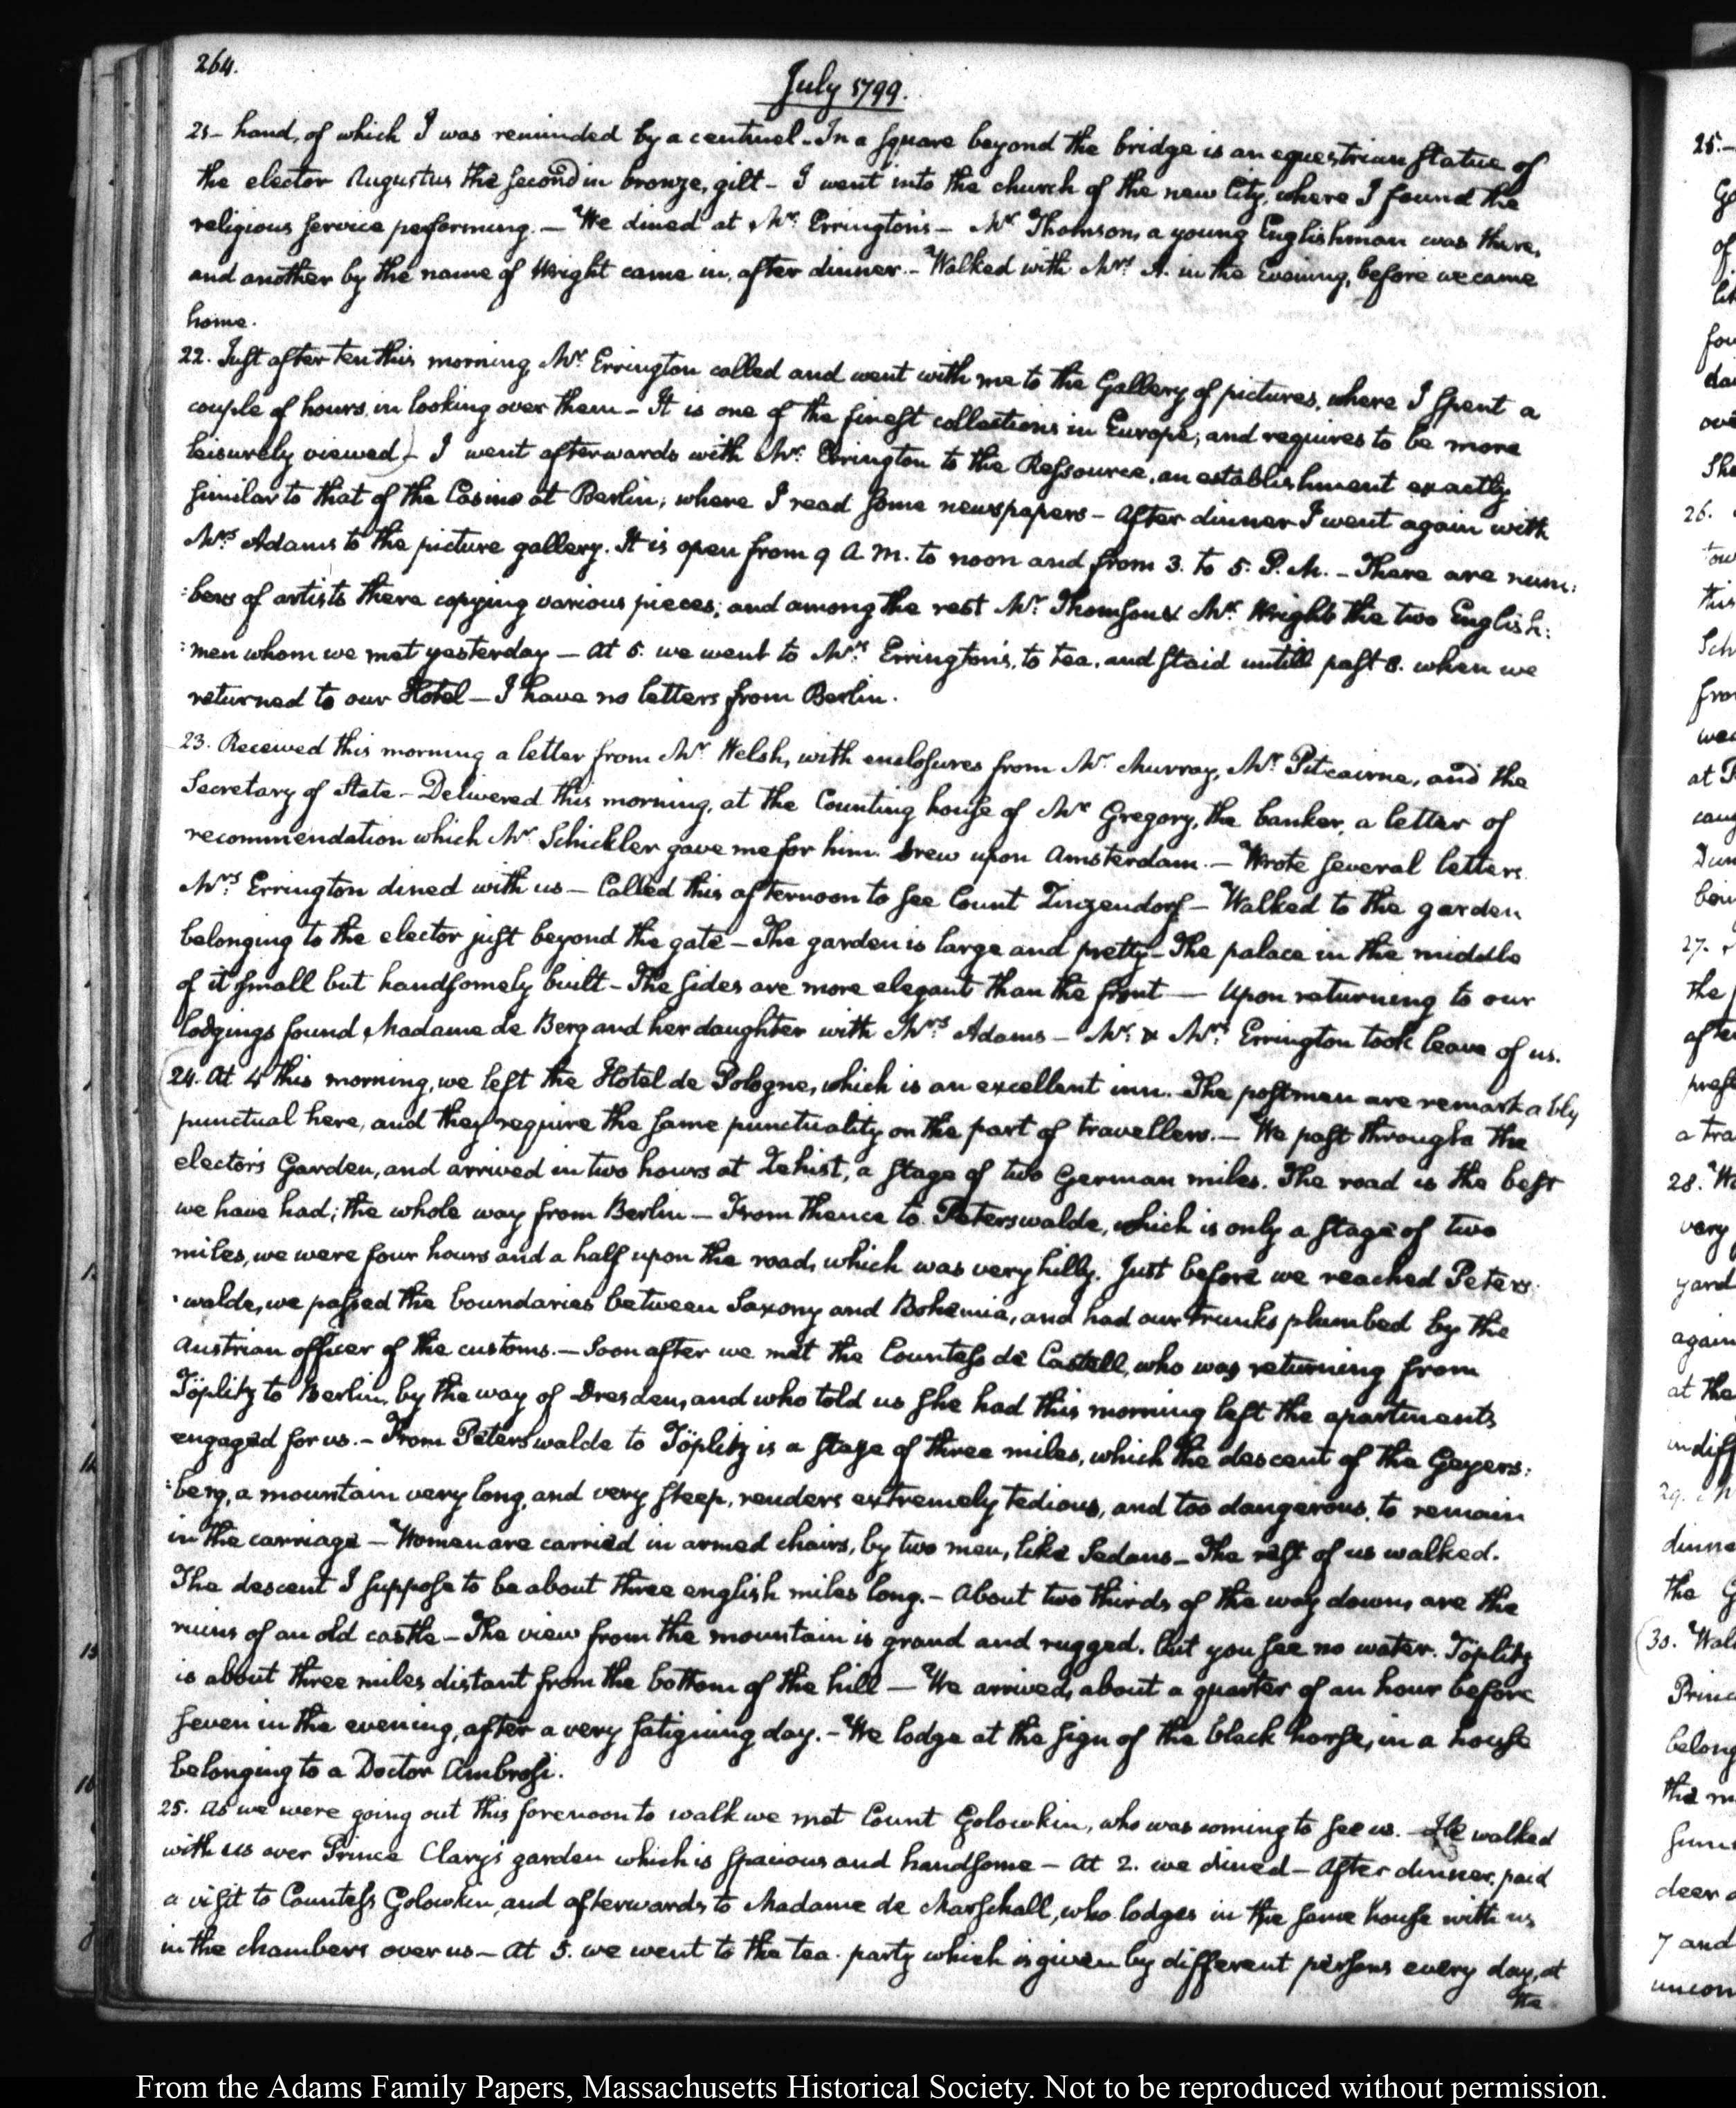 264.
July 1799.
21- hand, of which I was reminded by a centinel - In a square beyond the bridge is an equestrian statue of
the elector Augustus the second in bronze, gilt - I went into the church of the new City, where I found the
religious service performing. - We dined at Mr. Errington's - Mr. Thomson, a young Englishman was there,
and another by the name of Wright came in, after dinner. - Walked with Mrs. A. in the Evening, before we came
home.
22. Just after ten this morning Mr. Errington called and went with me to the Gallery of pictures, where I spent a
couple of hours in looking over them - It is one of the finest collections in Europe; and requires to be more
leisurely viewed - I went afterwards with Mr. Errington to the Ressource, an establishment exactly
similar to that of the Casino at Berlin; where I read some newspapers - After dinner I went again with
Mrs. Adams to the picture gallery. It is open from 9 A.M. to noon and from 3. to 5. P.M. - There are num:
:bers of artists there copying various pieces; and among the rest Mr. Thomson & Mr. Wright the two English:
:men whom we met yesterday - At 5. we went to Mrs. Errington's, to tea, and staid untill past 8. when we
returned to our Hotel - I have no letters from Berlin.
23. Received this morning a letter from Mr. Welsh, with enclosures from Mr. Murray, Mr. Pitcairne, and the
Secretary of State - Delivered this morning, at the Counting house of Mr. Gregory, the banker, a letter of
recommendation which Mr. Schickler gave me for him. Drew upon Amsterdam. - Wrote several letters.
Mrs. Errington dined with us - Called this afternoon to see Count Zinzendorf - Walked to the garden
belonging to the elector just beyond the gate - The garden is large and pretty - The palace in the middle
of it small but handsomely built - The sides are more elegant than the front - Upon returning to our
lodgings found Madame de Berg and her daughter with Mrs. Adams - Mr. & Mrs. Errington took leave of us.
24. At 4 this morning, we left the Hotel de Pologne, which is an excellent inn. The postmen are remarkably
punctual here, and they require the same punctuality on the part of travellers. - We past through the
elector's Garden, and arrived in two hours at Zehist, a stage of two German miles. The road is the best
we have had; the whole way from Berlin - From thence to Peterswalde, which is only a stage of two
miles, we were four hours and a half upon the road, which was very hilly. Just before we reached Peters:
:walde, we passed the boundaries between Saxony and Bohemia, and had our trunks plumbed by the
Austrian officer of the customs. - Soon after we met the Countess de Castell, who was returning from
Töplitz to Berlin, by the way of Dresden, and who told us she had this morning left the apartments
engaged for us. - From Peterswalde to Töplitz is a stage of three miles, which the descent of the Geyers:
:berg, a mountain very long, and very steep, renders extremely tedious, and too dangerous, to remain
in the carriage - Women are carried in armed chairs, by two men, like Sedans - The rest of us walked.
The descent I suppose to be about three english miles long. - About two thirds of the way down, are the
ruins of an old castle - The view from the mountain is grand and rugged, but you see no water. Töplitz
is about three miles distant from the bottom of the hill - We arrived, about a quarter of an hour before
seven in the evening, after a very fatiguing day. - We lodge at the sign of the black horse, in a house
belonging to a Doctor Ambrosi.
25. As we were going out this forenoon to walk we met Count Golowkin, who was coming to see us. - He walked
with us over Prince Clary's garden which is spacious and handsome - At 2. we dined - After dinner, paid
a visit to Countess Golowkin, and afterwards to Madame de Marschall, who lodges in the same house with us,
in the chambers over us - At 5. we went to the tea-party which is given by different persons every day, at
the
From the Adams Family Papers, Massachusetts Historical Society. Not to be reproduced without permission.